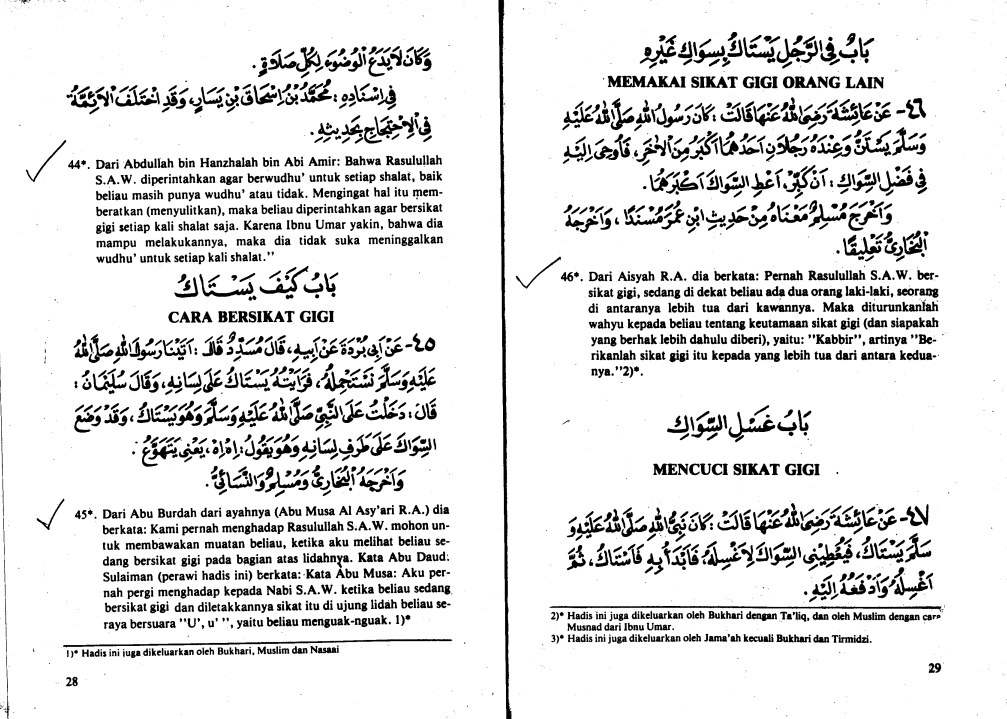 وَكَانَ لَا يَدَعُ الْوُضُوءَ لِكُلِّ صَلَاةٍ .
فِي إِسْنَادِهِ : مُحَمَّدُ بْنُ إِسْحَاقَ بْنِ يَسَارٍ، وَقَدِ اخْتَلَفَ الْأَئِمَّةُ
فِي الْاِحْتِجَاجِ بِحَدِيثِهِ .
44*. Dari Abdullah bin Hanzhalah bin Abi Amir: Bahwa Rasulullah
S.A.W. diperintahkan agar berwudhu' untuk setiap shalat, baik
beliau masih punya wudhu' atau tidak. Mengingat hal itu mem-
beratkan (menyulitkan), maka beliau diperintahkan agar bersikat
gigi setiap kali shalat saja. Karena Ibnu Umar yakin, bahwa dia
mampu melakukannya, maka dia tidak suka meninggalkan
wudhu' untuk setiap kali shalat."
بَابُ كَيْفَ يَسْتَاكُ
CARA BERSIKAT GIGI
٤٥- عَنْ أَبِي بُرْدَةَ عَنْ أَبِيهِ، قَالَ مُسَدَّدٌ قَالَ : أَتَيْنَا رَسُولَ اللهِ صَلَّى اللهُ
عَلَيْهِ وَسَلَّمَ نَسْتَحْمِلُهُ، فَرَأَيْتُهُ يَسْتَاكُ عَلَى لِسَانِهِ، وَقَالَ سُلَيْمَانُ :
قَالَ : دَخَلْتُ عَلَى النَّبِيِّ صَلَّى اللهُ عَلَيْهِ وَسَلَّمَ وَهُوَ يَسْتَاكُ، وَقَدْ وَضَعَ
السِّوَاكَ عَلَى طَرَفِ لِسَانِهِ وَهُوَ يَقُولُ : إِهْ إِهْ، يَعْنِي يَتَهَوَّعُ .
وَأَخْرَجَهُ الْبُخَارِيُّ وَمُسْلِمٌ وَالنَّسَائِيُّ .
45*. Dari Abu Burdah dari ayahnya (Abu Musa Al Asy'ari R.A.) dia
berkata: Kami pernah menghadap Rasulullah S.A.W. mohon un-
tuk membawakan muatan beliau, ketika aku melihat beliau se-
dang bersikat gigi pada bagian atas lidahnya. Kata Abu Daud:
Sulaiman (perawi hadis ini) berkata: Kata Abu Musa: Aku per-
nah pergi menghadap kepada Nabi S.A.W. ketika beliau sedang
bersikat gigi dan diletakkannya sikat itu di ujung lidah beliau se-
raya bersuara "U', u' ", yaitu beliau menguak-nguak. 1)*
1)* Hadis ini juga dikeluarkan oleh Bukhari, Muslim dan Nasaai
28
بَابٌ فِي الرَّجُلِ يَسْتَاكُ بِسِوَاكِ غَيْرِهِ
MEMAKAI SIKAT GIGI ORANG LAIN
٤٦- عَنْ عَائِشَةَ رَضِيَ اللهُ عَنْهَا قَالَتْ : كَانَ رَسُولُ اللهِ صَلَّى اللهُ عَلَيْهِ
وَسَلَّمَ يَسْتَنُّ وَعِنْدَهُ رَجُلَانِ أَحَدُهُمَا أَكْبَرُ مِنَ الْآخَرِ، فَأُوحِيَ إِلَيْهِ
فِي فَضْلِ السِّوَاكِ : أَنْ كَبِّرْ، أَعْطِ السِّوَاكَ أَكْبَرَهُمَا .
وَأَخْرَجَ مُسْلِمٌ مَعْنَاهُ مِنْ حَدِيثِ ابْنِ عُمَرَ مُسْنَدًا ، وَأَخْرَجَهُ
الْبُخَارِيُّ تَعْلِيقًا .
46*. Dari Aisyah R.A. dia berkata: Pernah Rasulullah S.A.W. ber-
sikat gigi, sedang di dekat beliau ada dua orang laki-laki, seorang
di antaranya lebih tua dari kawannya. Maka diturunkanlah
wahyu kepada beliau tentang keutamaan sikat gigi (dan siapakah
yang berhak lebih dahulu diberi), yaitu: "Kabbir", artinya "Be-
rikanlah sikat gigi itu kepada yang lebih tua dari antara kedua-
nya."2)*.
بَابُ غَسْلِ السِّوَاكِ
MENCUCI SIKAT GIGI
٤٧- عَنْ عَائِشَةَ رَضِيَ اللهُ عَنْهَا قَالَتْ : كَانَ نَبِيُّ اللهِ صَلَّى اللهُ عَلَيْهِ وَ
سَلَّمَ يَسْتَاكُ، فَيُعْطِينِي السِّوَاكَ لِأَغْسِلَهُ، فَأَبْدَأُ بِهِ فَأَسْتَاكُ، ثُمَّ
أَغْسِلُهُ وَأَدْفَعُهُ إِلَيْهِ .
2)* Hadis ini juga dikeluarkan oleh Bukhari dengan Ta'liq, dan oleh Muslim dengan cara
Musnad dari Ibnu Umar.
3)* Hadis ini juga dikeluarkan oleh Jama'ah kecuali Bukhari dan Tirmidzi.
29